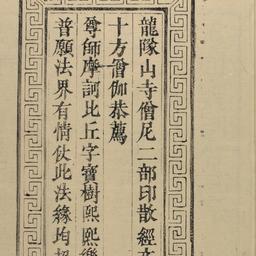 龍隊山寺僧尼二部印散經文
十方僧伽恭薦
尊師摩訶比丘字寶樹熙熙樂
普願法界有情仗此法緣均超